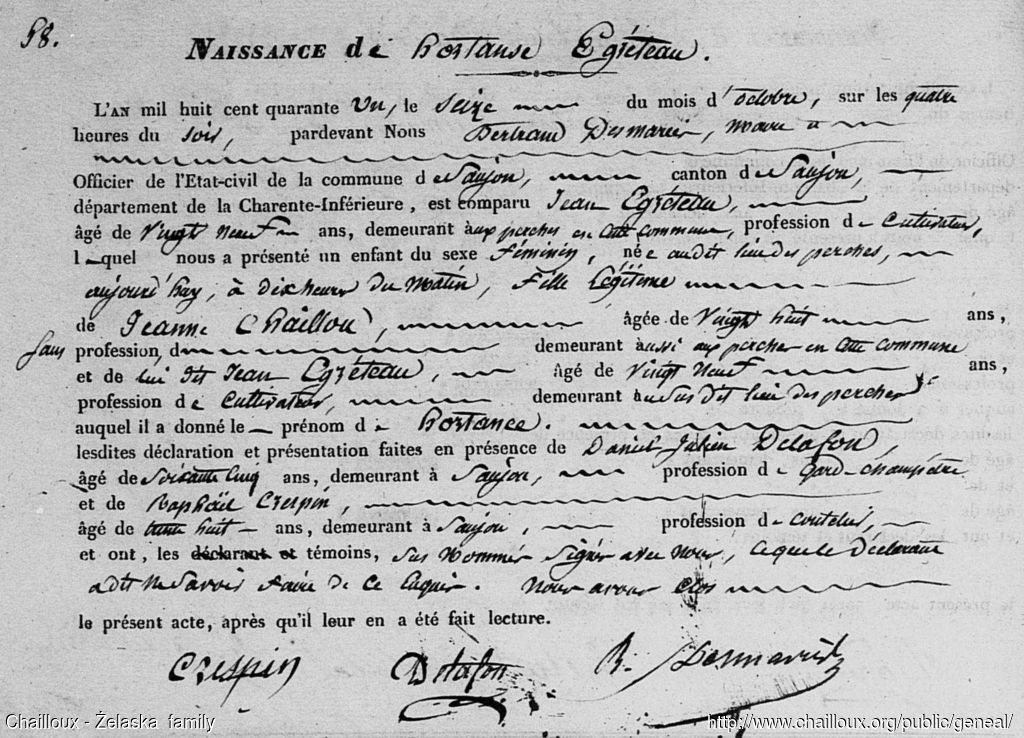 58.
NAISSANCE de hortanse Egréteau.
L'AN mil huit cent quarante un, le seize du mois d'octobre, sur les quatre
heures du soir, pardevant Nous Bertrand Desmarier, maire
Officier de l'Etat-civil de la commune de Saujon, canton de Saujon,
département de la Charente-Inférieure, est comparu Jean Egréteau,
âgé de vingt neuf ans, demeurant aux perches en cette commune, profession de Cultivateur,
lequel nous a présenté un enfant du sexe féminin, née audit lieu des perches,
aujourd'huy, à dix heures du matin, fille Légitime
de Jeanne Chaillou, âgée de vingt huit ans,
sans profession, d demeurant aussi aux perches en cette commune
et de lui dit Jean Egréteau, âgé de vingt neuf ans,
profession de Cultivateur, demeurant au susdit lieu des perches
auquel il a donné le prénom de hortance.
lesdites déclaration et présentation faites en présence de Daniel Julien Delafon,
âgé de soixante cinq ans, demeurant à Saujon, profession de gard-champêtre
et de Raphaël Crespin,
âgé de huit ans, demeurant à Saujon, profession de coutelier,
et ont, les déclarant et témoins, sus nommés signés avec nous, ce que le Déclarant
a dit ne savoir faire de ce enquis. Nous avons clos
le présent acte, après qu'il leur en a été fait lecture.
Crespin Delafon B. Desmarier
Chailloux - Želaska family http://www.chailloux.org/public/geneal/